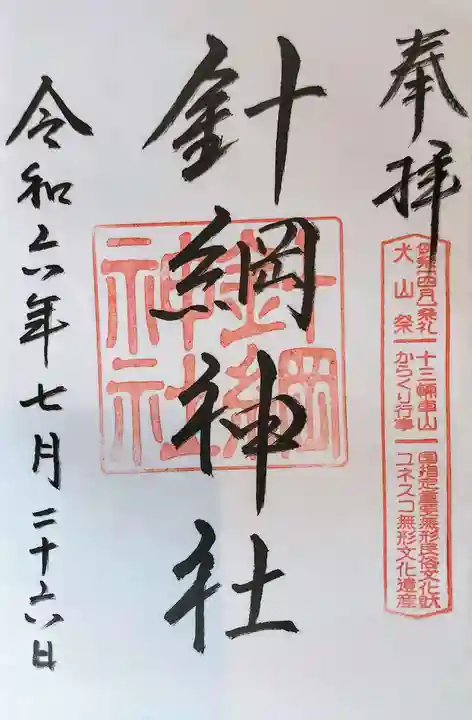 奉拝
犬山祭
四月祭礼
十三輛車山
からくり行事
国指定重要無形民俗文化財
ユネスコ無形文化遺産
針綱神社
針綱神社
令和六年七月二十六日